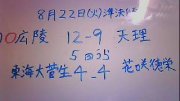 8月22日(火)準決勝
広陵 12-9 天理
5回5
東海大菅生 4-4 花咲徳栄